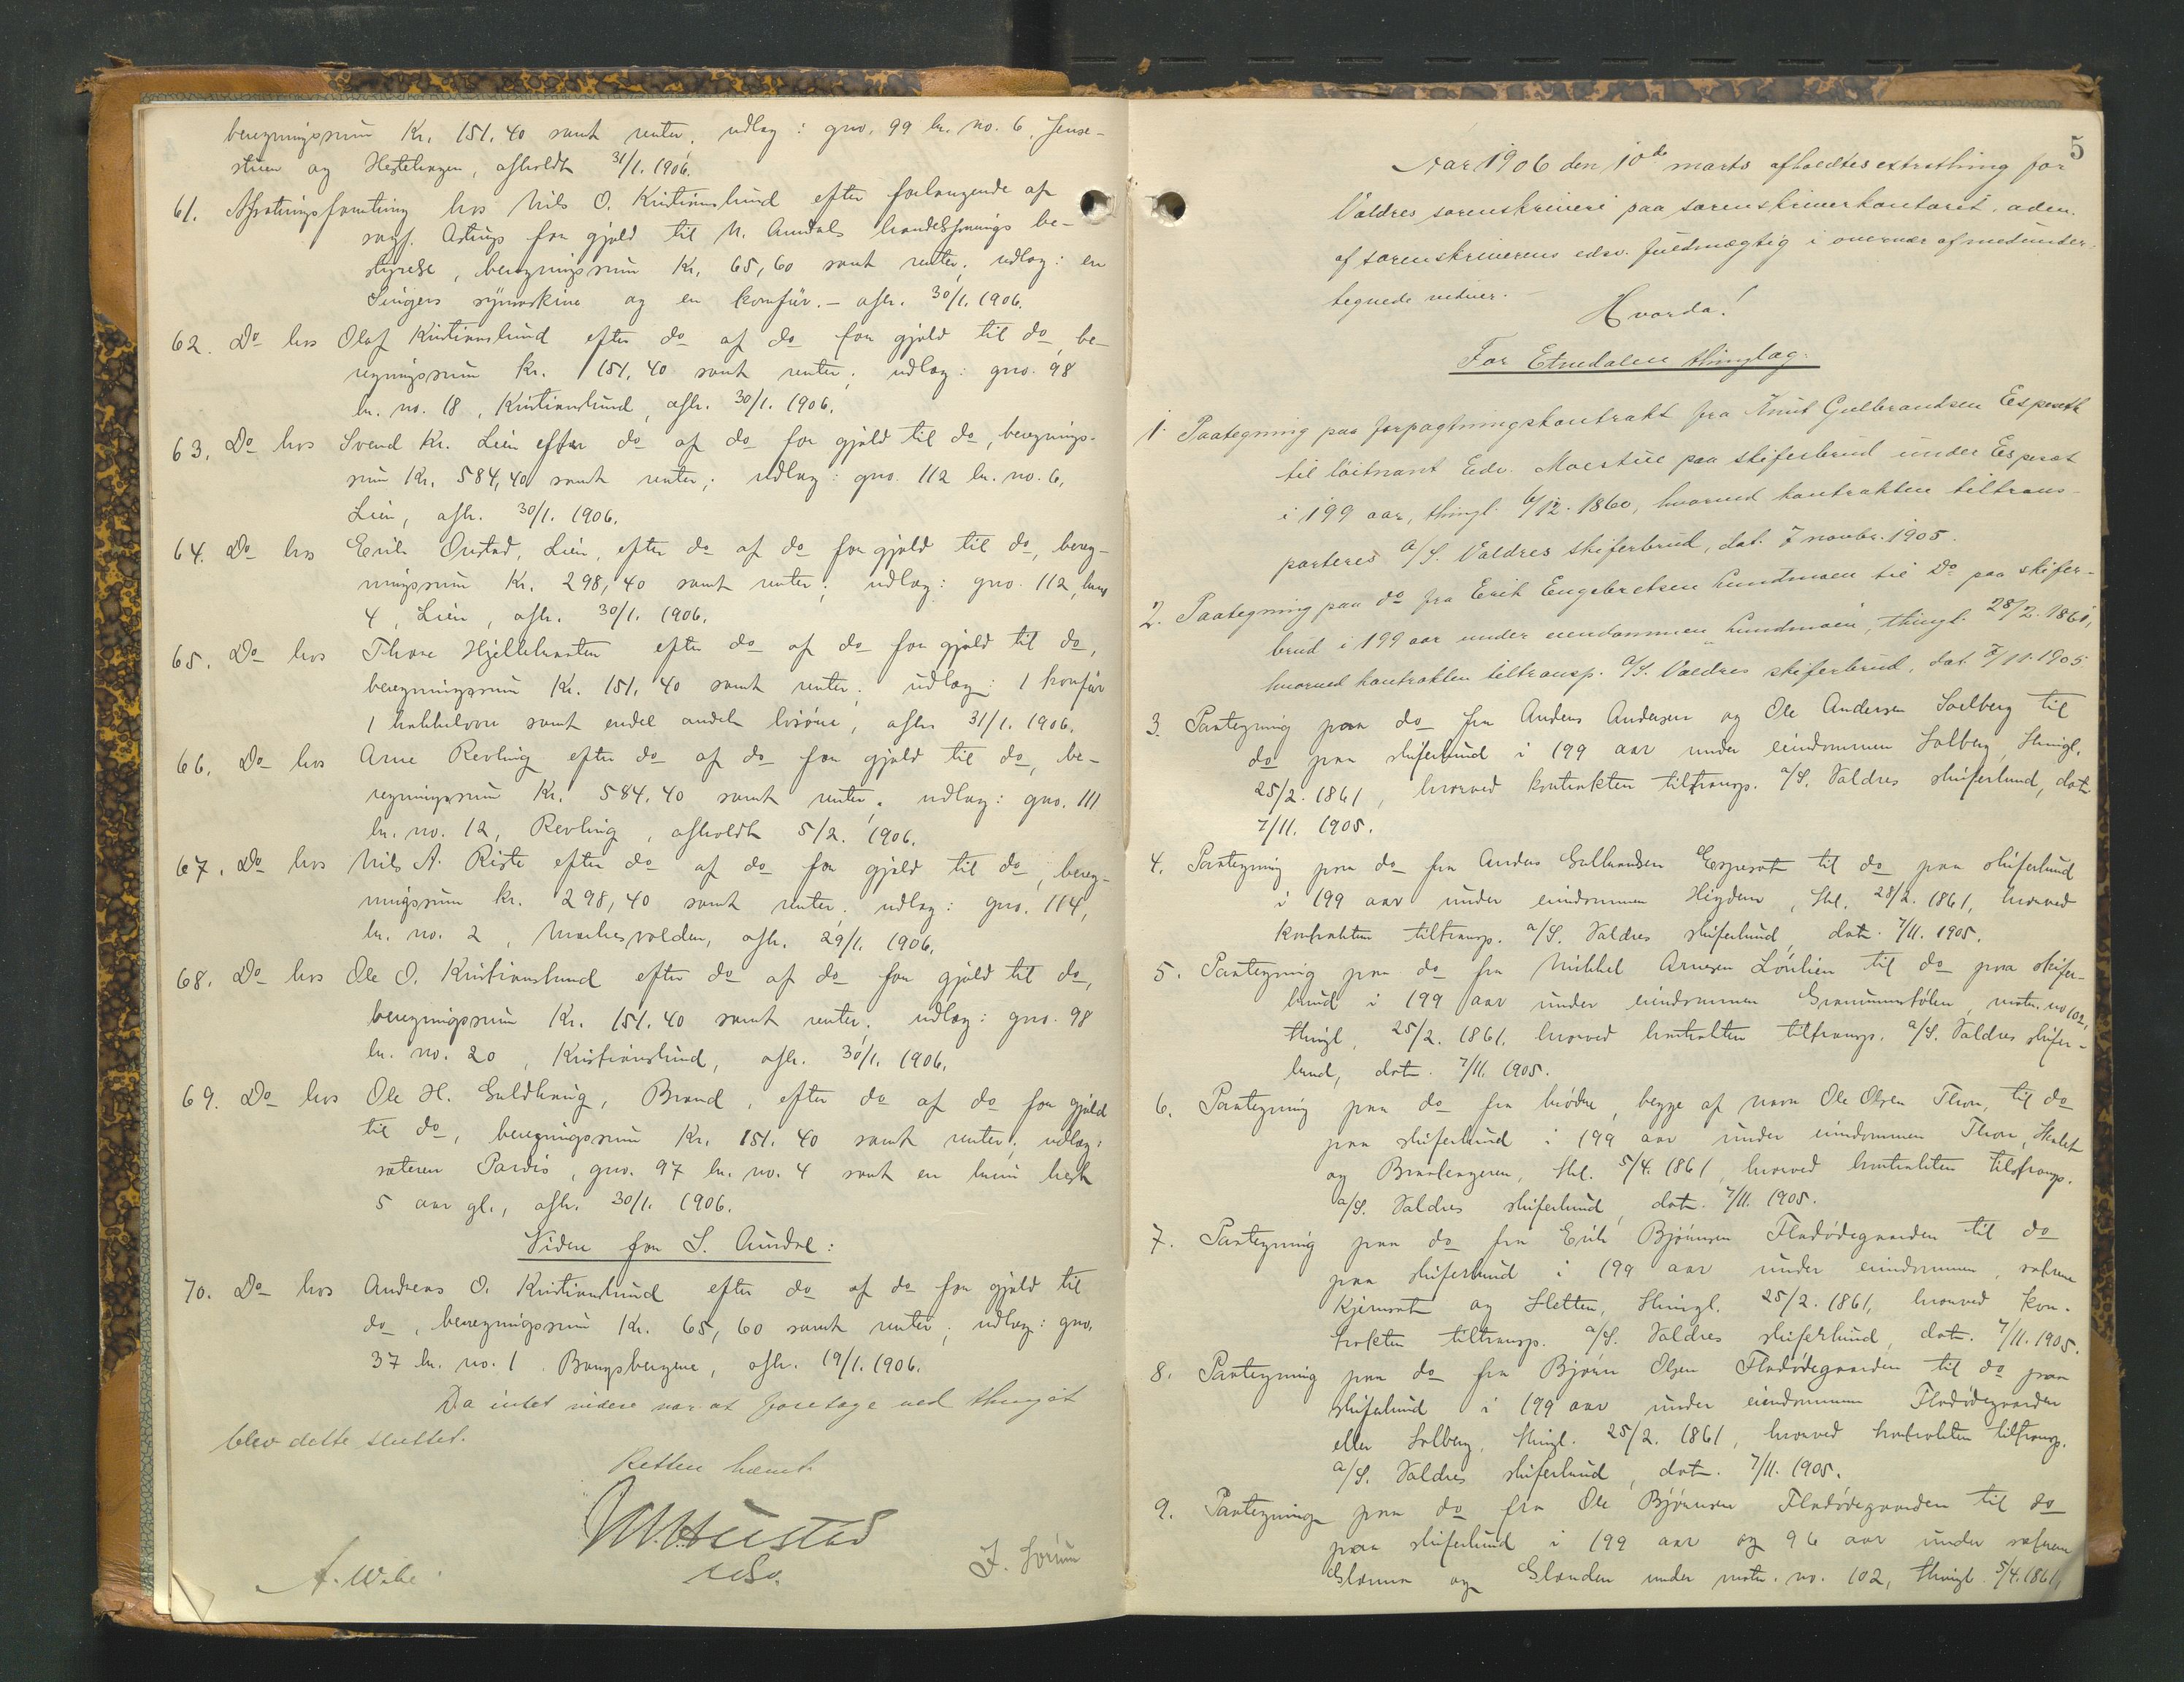 beregningssum Kr. 151.40 samt renter. udlæg: gno. 99 br. no. 6. Jense-
stuen og Hestehagen, afholdt 31/1. 1906.
61. Afsætningsforretning hos Nils O. Kristianslund efter forlangende af
sagf. Astrup for gjæld til N. Aurdals handelsforenings be-
styrelse, beregningssum Kr. 65,60 samt renter, udlæg: en
Singers symaskine og en komfur. - afh. 30/1. 1906.
62. Do hos Olaf Kristianslund efter do af do for gjæld til do, be-
regningssum kr. 151.40 samt renter; udlæg: gno. 98
br. no. 18, Kristianslund, afh. 30/1. 1906.
63. Do hos Svend Kr. Lien efter do af do for gjæld til do, beregnings-
sum Kr. 584,40 samt renter; udlæg: gno. 112 br. no. 6,
Lien, afh. 30/1. 1906.
64. Do hos Erik Onstad, Lien, efter do af do for gjæld til do, bereg-
ningssum Kr. 298,40 samt renter; udlæg: gno. 112, brno
4, Lien, afh. 30/1. 1906.
65. Do hos Thore efter do af do for gjæld til do,
beregningssum Kr. 151.40 samt renter. udlæg: 1 komfur
1 kakkelovn samt endel andet løsøre, afh. 31/1. 1906.
66. Do hos Arne Revling efter do af do for gjæld til do, be-
regningssum Kr. 584.40 samt renter, udlæg: gno. 111
br. no. 12, Revling, afholdt 5/2. 1906.
67. Do hos Nils A. Riste efter do af do for gjæld til do, bereg-
ningssum kr. 298,40 samt renter. udlæg: gno. 114,
br. no. 2, afh. 29/1. 1906.
68. Do hos Ole O. Kristianslund efter do af do for gjæld til do,
beregningssum Kr. 151.40 samt renter. udlæg: gno. 98
br. no. 20, Kristianslund, afh. 30/1. 1906.
69. Do hos Ole H. Guldhaug, Brand, efter do af do for gjæld
til do, beregningssum Kr. 151.40 samt renter; udlæg:
sæteren Pardis, gno. 97 br. no. 4 samt en brun hest
5 aar gl., afh. 30/1. 1906.
Videre for S. Aurdal:
70. Do hos Andreas O. Kristianslund efter do af do for gjæld til
do, beregningssum Kr. 65,60 samt renter; udlæg: gno.
37 br. no. 1. Bangsbergene, afh. 19/1. 1906.
Da intet videre var at foretage ved thinget
blev dette sluttet.
Retten hævet.
Hustad
A. Wibe. J. Sørum
5
Aar 1906 den 10de marts afholdtes extrathing for
Valdres sorenskriveri paa sorenskriverkontoret. adm.
af sorenskriverens edsv. fuldmægtig i overvær af medunder-
tegnede vidner. -
Hvorda!
For Etnedalen thinglag.
1. Paategning paa forpagtningskontrakt fra Knut Gulbrandsen Espeseth
til løitnant Edv. Moestue paa skiferbrud under Espeset
i 199 aar, thingl. 6/12. 1860, hvorved kontrakten tiltrans-
porteres A/S. Valdres skiferbrud, dat. 7 novbr. 1905.
2. Paategning paa do fra Erik Engebretsen Lundmoen til Do paa skifer-
brud i 199 aar under eiendommen Lundmoen, thingl. 28/2. 1861,
hvorved kontrakten tiltransp. A/S. Valdres skiferbrud, dat. 7/11. 1905
3. Paategning paa do fra Anders Andersen og Ole Andersen Solberg til
do paa skiferbrud i 199 aar under eiendommen Solberg, thingl.
25/2. 1861, hvorved kontrakten tiltransp. A/S. Valdres skiferbrud, dat.
7/11. 1905.
4. Paategning paa do fra Anders Gulbrandsen Espeset til do paa skiferbrud
i 199 aar under eiendommen Høgden, thl. 28/2. 1861, hvorved
kontrakten tiltransp. A/S. Valdres skiferbrud, dat. 7/11. 1905.
5. Paategning paa do fra Mikkel Arnesen Lønlien til do paa skifer-
brud i 199 aar under eiendommen, matr. no 102,
thingl. 25/2. 1861. hvorved kontrakten tiltransp. A/S. Valdres skifer-
brud, dat. 7/11. 1905.
6. Paategning paa do fra brødre, begge af navn Ole Olsen Thon, til do
paa skiferbrud i 199 aar under eiendommen Thon,
og, thl. 5/4. 1861, hvorved kontrakten tiltransp.
A/S. Valdres skiferbrud, dat. 7/11. 1905.
7. Paategning paa do fra Erik Bjørnsen Fladødegaarden til do
paa skiferbrud i 199 aar under eiendommen, sætrene
Kjernsæt og Sletten, thingl. 25/2. 1861, hvorved kon-
trakten tiltransp. A/S. Valdres skiferbrud, dat. 7/11. 1905.
8. Paategning paa do fra Bjørn Olsen Fladødegaarden til do paa
skiferbrud i 199 aar under eiendommen Fladødegaarden
eller Solberg, thingl. 25/2. 1861, hvorved kontrakten tiltransp.
A/S. Valdres skiferbrud, dat. 7/11. 1905.
9. Paategning paa do fra Ole Bjørnsen Fladødegaarden til do
paa skiferbrud i 199 aar og 96 aar under sætrene
og Slanden under matr. no. 102, thingl. 5/4. 1861,